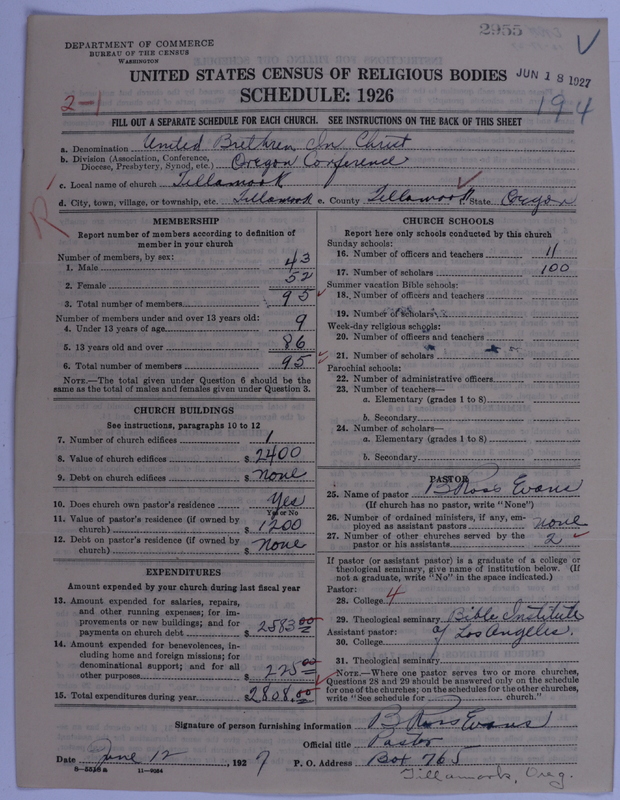 2955
DEPARTMENT OF COMMERCE
BUREAU OF THE CENSUS
WASHINGTON
UNITED STATES CENSUS OF RELIGIOUS BODIES
JUN 18 1927
SCHEDULE: 1926
2-1
194
FILL OUT A SEPARATE SCHEDULE FOR EACH CHURCH. SEE INSTRUCTIONS ON THE BACK OF THIS SHEET
a. Denomination United Brethren In Christ
b. Division (Association, Conference, Diocese, Presbytery, Synod, etc.) Oregon Conference
c. Local name of church Tillamook
d. City, town, village, or township, etc. Tillamook e. County Tillamook State Oregon
R
MEMBERSHIP
Report number of members according to definition of member in your church
Number of members, by sex:
1. Male 43
2. Female 52
3. Total number of members 95
Number of members under and over 13 years old:
4. Under 13 years of age 9
5. 13 years old and over 86
6. Total number of members 95
NOTE.—The total given under Question 6 should be the same as the total of males and females given under Question 3.
CHURCH BUILDINGS
See instructions, paragraphs 10 to 12
7. Number of church edifices 1
8. Value of church edifices $ 2400
9. Debt on church edifices $ none
10. Does church own pastor's residence Yes
Yes or No
11. Value of pastor's residence (if owned by church) $ 1200
12. Debt on pastor's residence (if owned by church) $ none
EXPENDITURES
Amount expended by your church during last fiscal year
13. Amount expended for salaries, repairs, and other running expenses; for improvements or new buildings; and for payments on church debt $ 2583.00
14. Amount expended for benevolences, including home and foreign missions; for denominational support; and for all other purposes $ 225.00
15. Total expenditures during year $ 2808.00
CHURCH SCHOOLS
Report here only schools conducted by this church
Sunday schools:
16. Number of officers and teachers 11
17. Number of scholars 100
Summer vacation Bible schools:
18. Number of officers and teachers
19. Number of scholars
Week-day religious schools:
20. Number of officers and teachers
21. Number of scholars
Parochial schools:
22. Number of administrative officers
23. Number of teachers—
a. Elementary (grades 1 to 8)
b. Secondary
24. Number of scholars—
a. Elementary (grades 1 to 8)
b. Secondary
PASTOR
25. Name of pastor B Ross Evans
(If church has no pastor, write "None")
26. Number of ordained ministers, if any, employed as assistant pastors none
27. Number of other churches served by the pastor or his assistants 2
If pastor (or assistant pastor) is a graduate of a college or theological seminary, give name of institution below. (If not a graduate, write "No" in the space indicated.)
Pastor:
28. College 4
29. Theological seminary Bible Institute
Assistant pastor: of Los Angeles.
30. College
31. Theological seminary
NOTE.—Where one pastor serves two or more churches, Questions 28 and 29 should be answered only on the schedule for one of the churches; on the schedules for the other churches, write "See schedule for church."
Signature of person furnishing information B Ross Evans
Official title Pastor
Date June 12, 1927 P. O. Address Box 765
Tillamook, Oreg.
8-5516a 11-9054